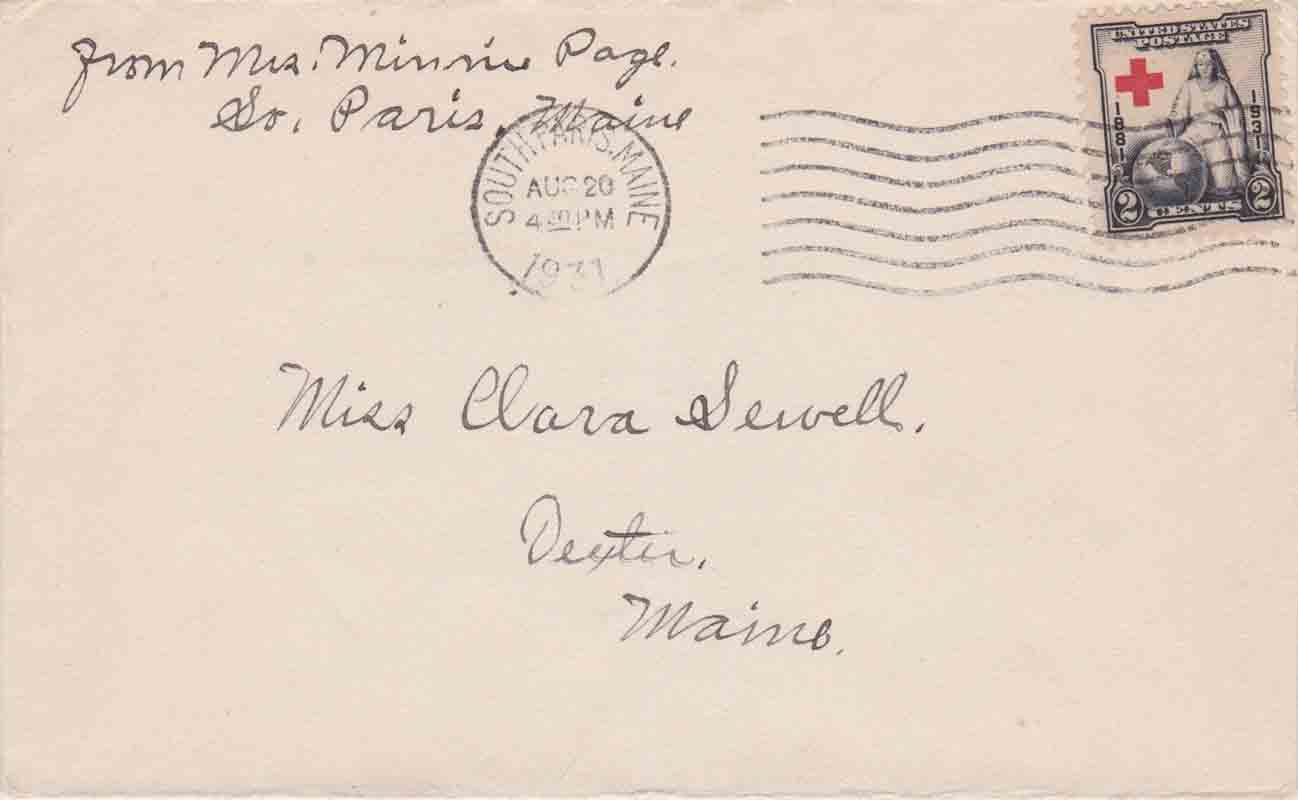 from Mrs. Minnie Page.
So. Paris, Maine
SOUTH PARIS. MAINE
AUG 20
4 PM
1931
UNITED STATES
POSTAGE
1881
1931
2 CENTS 2
Miss Clara Sewell.
Dexter.
Maine.